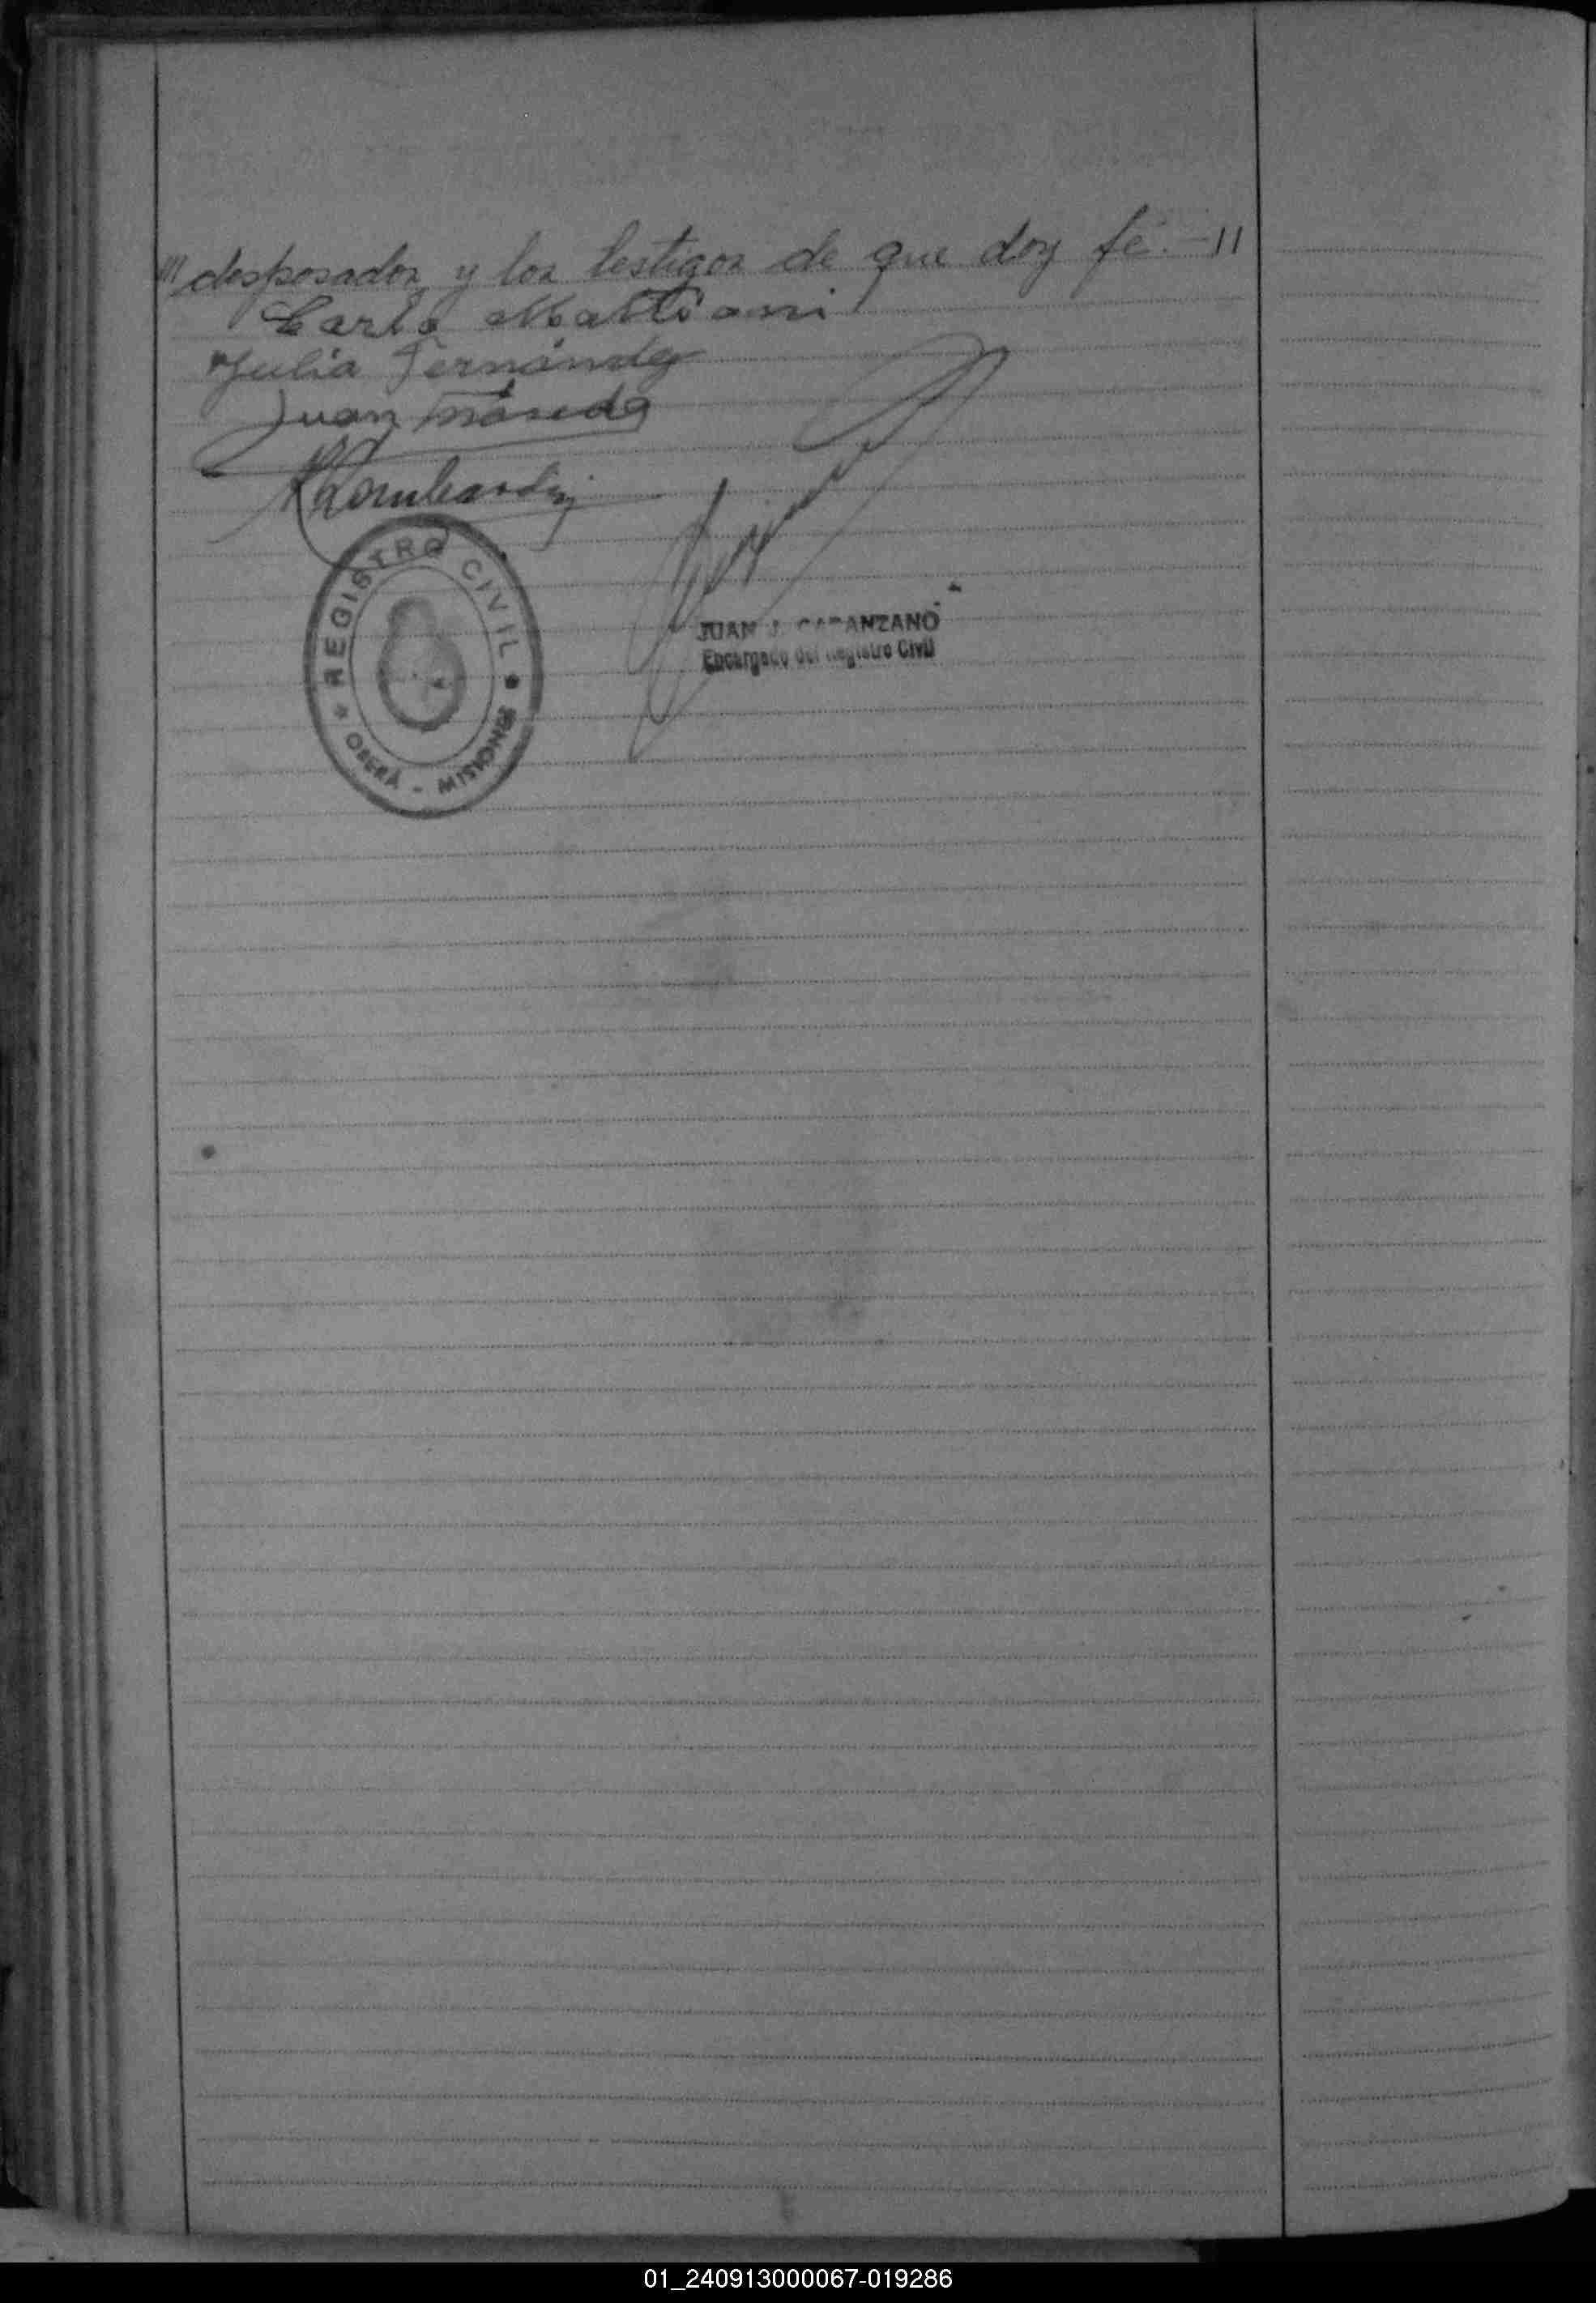 /// desposados y los testigos de que doy fé.-//
Carlo Mattiani
Julia Fernández
Juan
Lombardini
REGISTRO CIVIL
OBERÁ - MISIONES
JUAN J. CARANZANO
Encargado del Registro Civil
01_240913000067-019286